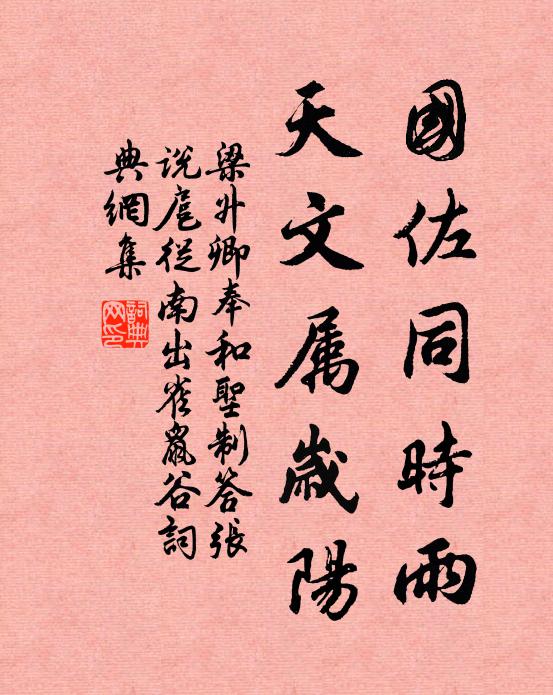 國佐同時雨
天文属歲陽
梁升卿奉和聖制答張
说扈從南出雀鼠谷詞
典網集
詞典網印